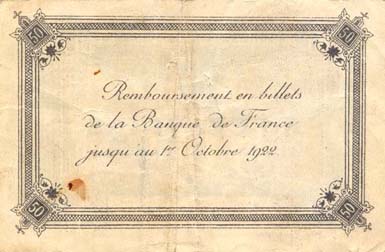 50 50
Remboursement en billets
de la Banque de France
jusqu'au 1er Octobre 1922
50 50